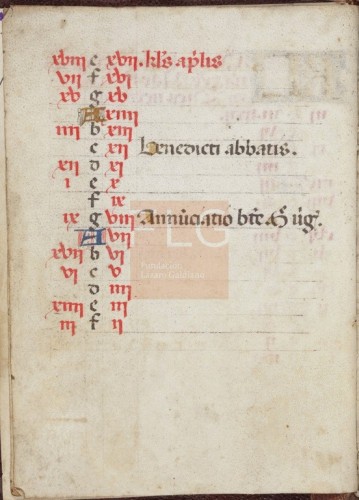 xviii e xvii. kl's ap'lis
vii f xvi
xv g xv
A xiiii
iiii b xiii
c xii Benedicti abbatis.
xii d xi
i e x
f ix
ix g viii Annūciatio bte M vġ.
A vii
xvii b vi
vi c v
d iiii
xiiii e iii
iii f ii
FLG
Fundación
Lázaro Galdiano